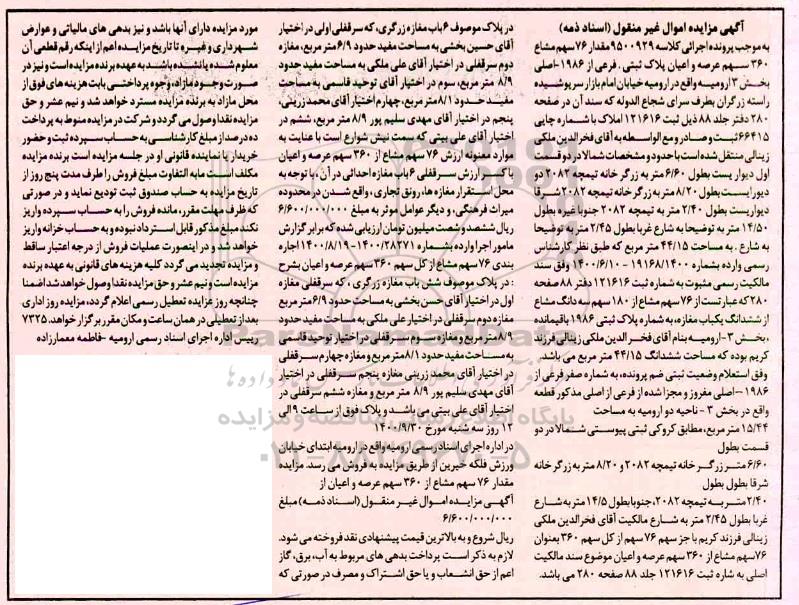 آگهی مزایده اموال غیر منقول (اسناد ذمه)
به موجب پرونده اجرائی کلاسه ۹۵۰۰۹۲۹ مقدار ۷۶ سهم مشاع
۳۶۰ سهم عرصه و اعیان پلاک ثبتی . فرعی از ۱۹۸۶-اصلی
بخش ۳ ارومیه واقع در ارومیه خیابان امام بازار سرپوشیده
راسته زرگران بطرف سرای شجاع الدوله که سند آن در صفحه
۲۸۰ دفتر جلد ۸۸ ذیل ثبت ۱۲۱۶۱۶ املاک با شماره چاپی
۶۶۴۱۵ ثبت و صادر و مع الواسطه به آقای فخرالدین ملکی
زینالی منتقل شده است با حدود و مشخصات شمالا در دو قسمت
اول دیوار یست بطول ۶/۶۰ متر به زرگر خانه تیمچه ۲۰۸۲ دو
دیواریست بطول ۸/۲۰ متر به زرگر خانه تیمچه ۲۰۸۲ شرقا
دیواریست بطول ۲/۴۰ متر به تیمچه ۲۰۸۲ جنوبا غیره بطول
۱۴/۵۰ متر به توضیحا به شارع غربا بطول ۲/۴۵ متر به توضیحا
به شارع . به مساحت ۴۴/۱۵ متر مربع که طبق نظر کارشناس
رسمی وارده بشماره ۱۹۱۶۸/۱۴۰۰ - ۱۴۰۰/۶/۱۰ وفق سند
مالکیت رسمی مثبوت به شماره ثبت ۱۲۱۶۱۶ دفتر ۸۸ صفحه
۲۸۰ که عبارتست از ۷۶ سهم مشاع از ۱۸۰ سهم سه دانگ مشاع
از ششدانگ یکباب مغازه، به شماره پلاک ثبتی ۱۹۸۶ باقیمانده
، بخش ۳-ارومیه بنام آقای فخر الدین ملکی زینالی فرزند
کریم بوده که مساحت ششدانگ ۴۴/۱۵ متر مربع می باشد.
وفق استعلام وضعیت ثبتی ضم پرونده، به شماره صفر فرعی از
۱۹۸۶ -اصلی مفروز و مجزا شده از فرعی از اصلی مذکور قطعه
واقع در بخش ۳ - ناحیه دو ارومیه به مساحت
۱۵/۴۴ متر مربع، مطابق کروکی ثبتی پیوستی شمالا در دو
قسمت بطول
۶/۶۰ متر زرگر خانه تیمچه ۲۰۸۲ و ۸/۲۰ متر به زرگر خانه
شرقا بطول بطول
۲/۴۰ متر به تیمچه ۲۰۸۲، جنوبا بطول ۱۴/۵ متر به شارع
غربا بطول ۲/۴۵ متر به شارع مالکیت آقای فخرالدین ملکی
زینالی فرزند کریم با جز سهم ۷۶ سهم از کل سهم ۳۶۰ بعنوان
۷۶ سهم مشاع از ۳۶۰ سهم عرصه و اعیان موضوع سند مالکیت
اصلی به شماره ثبت ۱۲۱۶۱۶ جلد ۸۸ صفحه ۲۸۰ می باشد.
در پلاک موصوف ۶ باب مغازه زرگری، که سرقفلی اولی در اختیار
آقای حسین بخشی به مساحت مفید حدود ۶/۹ متر مربع، مغازه
دوم سرقفلی در اختیار آقای علی ملکی به مساحت مفید حدود
۸/۹ متر مربع، سوم در اختیار آقای توحید قاسمی به مساحت
مفید حدود ۸/۱ متر مربع، چهارم اختیار آقای محمد زرینی،
پنجم در اختیار آقای مهدی سلیم پور ۸/۹ متر مربع، ششم در
اختیار آقای علی بیتی که سمت نبش شوارع است با عنایت به
موارد معنونه ارزش ۷۶ سهم مشاع از ۳۶۰ سهم عرصه و اعیان
با کسر ارزش سرقفلی ۶ باب مغازه احداثی در آن ، با توجه به
محل استقرار مغازه ها، رونق تجاری، واقع شدن در محدوده
میراث فرهنگی، و دیگر عوامل موثر به مبلغ ۶/۶۰۰/۰۰۰/۰۰۰
ریال ششصد و شصت میلیون تومان ارزیابی شده که برابر گزارش
مامور اجرا وارده بشماره ۲۸۲۷۱/۱۴۰۰-۱۴۰۰/۸/۱۹ اجاره
بندی ۷۶ سهم مشاع از کل سهم ۳۶۰ سهم عرصه و اعیان بشرح
: در پلاک موصوف شش باب مغازه زرگری ، که سرقفلی مغازه
اول در اختیار آقای حسن بخشی به مساحت حدود ۶/۹ متر مربع
مغازه دوم سرقفلی در اختیار علی ملکی به مساحت مفید حدود
۸/۹ متر مربع و مغازه سوم سرقفلی در اختیار توحید قاسمی
به مساحت مفید حدود ۸/۱ متر مربع و مغازه چهارم سرقفلی
در اختیار آقای محمد زرینی مغازه پنجم سرقفلی در اختیار
آقای مهدی سلیم پور ۸/۹ متر مربع و مغازه ششم سرقفلی در
اختیار آقای علی بیتی می باشد و پلاک فوق از ساعت ۹ الی
۱۲ روز سه شنبه مورخ ۱۴۰۰/۹/۳۰
در اداره اجرای اسناد رسمی ارومیه واقع در ارومیه ابتدای خیابان
ورزش فلکه خیرین از طریق مزایده به فروش می رسد. مزایده
مقدار ۷۶ سهم مشاع از ۳۶۰ سهم عرصه و اعیان از
آگهی مزایده اموال غیر منقول (اسناد ذمه) مبلغ
۶/۶۰۰/۰۰۰/۰۰۰
ریال شروع و به بالاترین قیمت پیشنهادی نقد فروخته می شود.
لازم به ذکر است پرداخت بدهی های مربوط به آب، برق، گاز
اعم از حق انشعاب و یا حق اشتراک و مصرف در صورتی که
مورد مزایده دارای آنها باشد و نیز بدهی های مالیاتی و عوارض
شهرداری و غیره تا تاریخ مزایده اعم از اینکه رقم قطعی آن
معلوم شده یا نشده باشد به عهده برنده مزایده است و نیز در
صورت وجود مازاد، وجوه پرداختی بابت هزینه های فوق از
محل مازاد به برنده مزایده مسترد خواهد شد و نیم عشر و حق
مزایده نقدا وصول می گردد و شرکت در مزایده منوط به پرداخت
ده درصد از مبلغ کارشناسی به حساب سپرده ثبت و حضور
خریدار یا نماینده قانونی او در جلسه مزایده است برنده مزایده
مکلف است مابه التفاوت مبلغ فروش را ظرف مدت پنج روز از
تاریخ مزایده به حساب صندوق ثبت تودیع نماید و در صورتی
که ظرف مهلت مقرر، مانده فروش را به حساب سپرده واریز
نکند مبلغ مذکور قابل استرداد نبوده و به حساب خزانه واریز
خواهد شد و در اینصورت عملیات فروش از درجه اعتبار ساقط
و مزایده تجدید می گردد کلیه هزینه های قانونی به عهده برنده
مزایده است و نیم عشر و حق مزایده نقدا وصول خواهد شد ضمنا
چنانچه روز مزایده تعطیل رسمی اعلام گردد، مزایده روز اداری
بعد از تعطیلی در همان ساعت و مکان مقرر برگزار خواهد شد. ۷۳۲۵
رییس اداره اجرای اسناد رسمی ارومیه -فاطمه معمارزاده
ParsNamadData
پایگاه اطلاع رسانی مناقصه و مزایده
۰۲۱-۸۸۳۴۹۶۷۰-۵